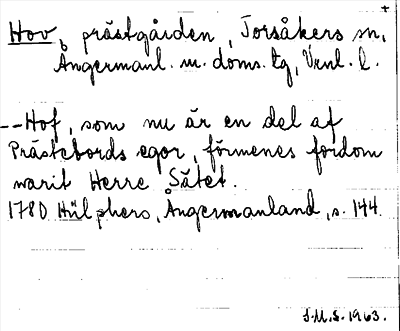 Hov, prästgården, Torsåkers sn,
Ångermanl. m. doms. tg, Vrnl. l.
--Hof, som nu är en del af
Prästebords egor, förmenes fordom
warit Herre Sätet.
1780 Hülphers, Ångermanland, s. 144.
S.M.S. 1963.